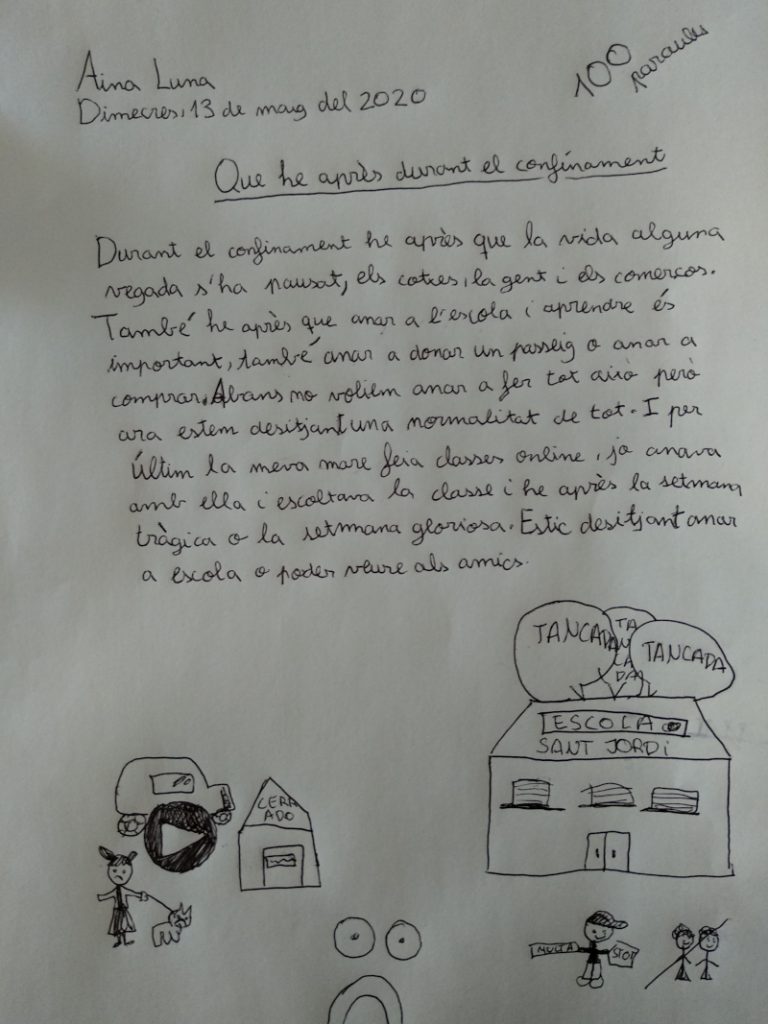 Aina Luna
100 paraules
Dimecres, 13 de maig del 2020
Que he après durant el confinament
Durant el confinament he après que la vida alguna
vegada s'ha pausat, els cotxes, la gent i els comerços.
També he après que anar a l'escola i aprendre és
important, també anar a donar un passeig o anar a
comprar. Abans no voliem anar a fer tot això però
ara estem desitjant una normalitat de tot. I per
últim la meva mare feia classes online, jo anava
amb ella i escoltava la classe i he après la setmana
tràgica o la setmana gloriosa. Estic desitjant anar
a escola o poder veure als amics.
TANCADA
TA
AN
CA
DA
TANCADA
ESCOLA
SANT JORDI
CERR
ADO
MULTA
STOP